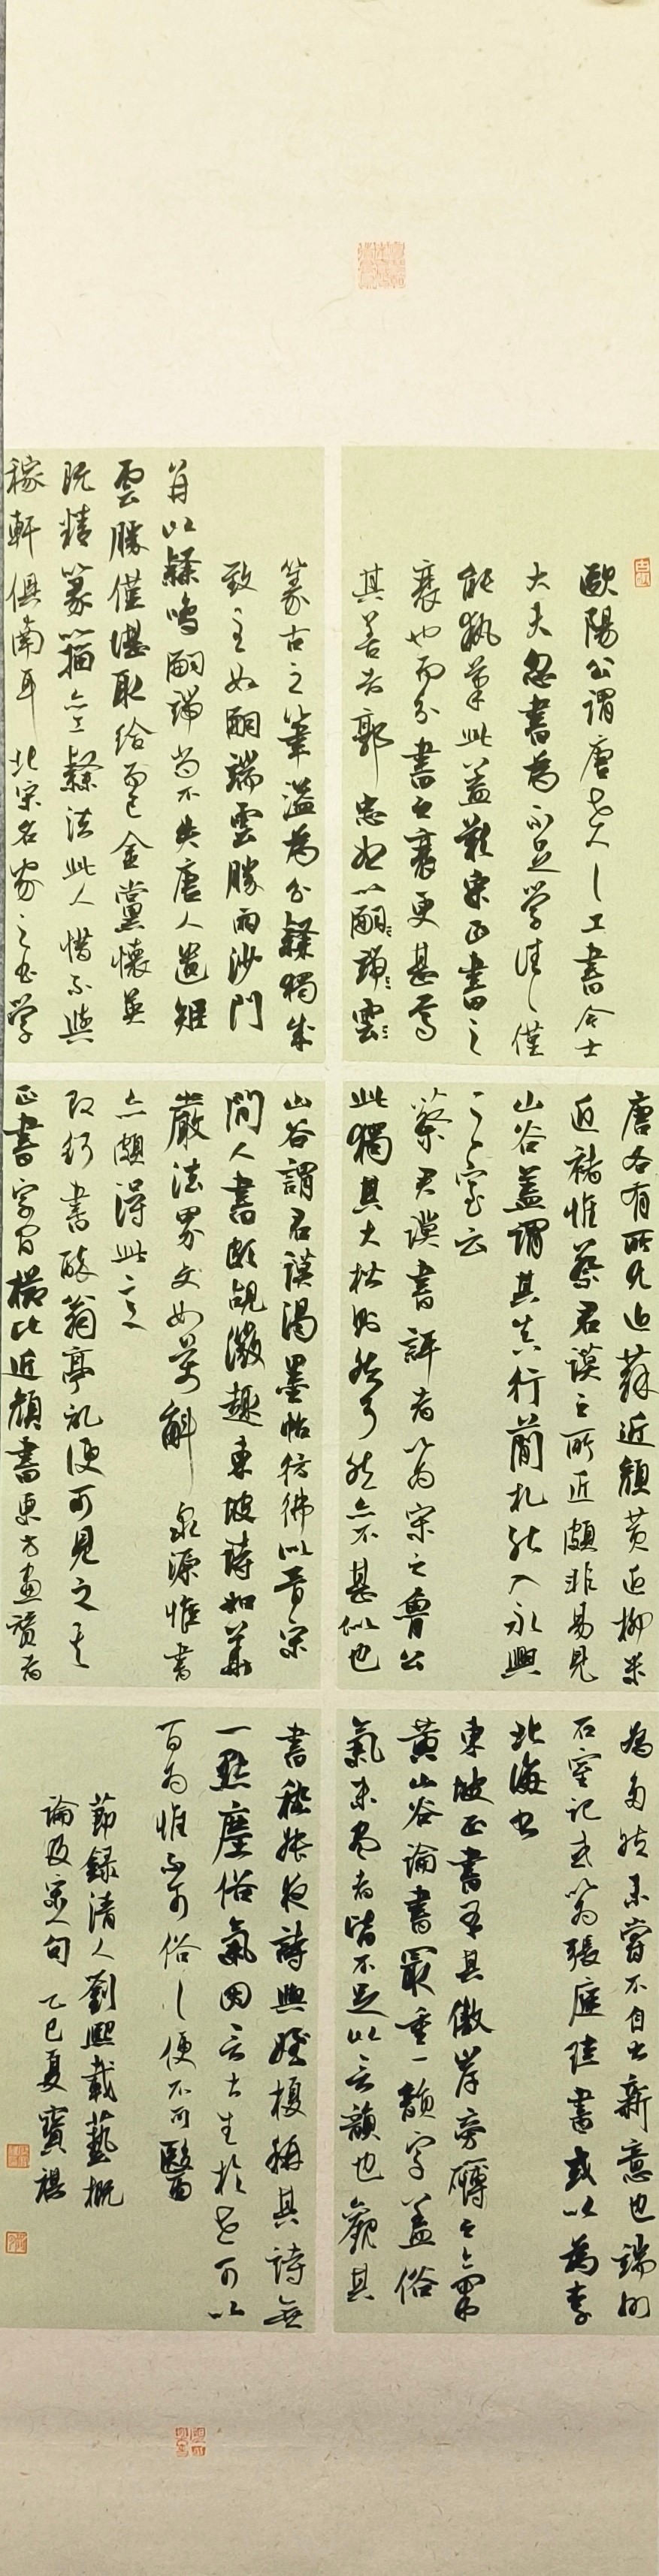 歐陽公謂唐世人人工書今士
大夫忽書為不足學往往僅
能執筆此蓋歎宋正書之
衰也而分書之衰更甚焉
其善者郭忠恕以嗣端雲
篆古之筆溢為分隸獨成
致至如嗣端雲勝兩沙門
並以隸鳴嗣端尚不失唐人遺矩
雲勝僅堪取給而已金黨懷英
既精篆籀亦工隸法此人惜不與
稼軒俱南耳北宋名家之書學
唐各有所尤近蘇近顏黃近柳米
近褚惟蔡君謨之所近頗非易見
山谷蓋謂其真行簡札能入永興
之室云
蔡君謨書評者以為宋之魯公
此獨其大楷則然耳然亦不甚似也
山谷謂君謨渴墨帖彷彿似晉宋
間人書頗覘微趣東坡詩如華
嚴法界文如萬斛泉源惟書
亦頗得此意
即行書醉翁亭記便可見之其
正書字間櫛比近顏書東方畫贊者
為多然未嘗不自出新意也端州
石室記或以為張庭珪書或以為李
北海書
東坡正書有其傲岸旁礴之氣
黃山谷論書最重一韻字蓋俗
氣未盡者皆不足以言韻也觀其
書嵇叔夜詩與姪榎稱其詩無
一點塵俗氣因言士生於世可以
百為惟不可俗俗便不可醫
節錄清人劉熙載藝概
論及宋人句 乙巳夏 寶祺